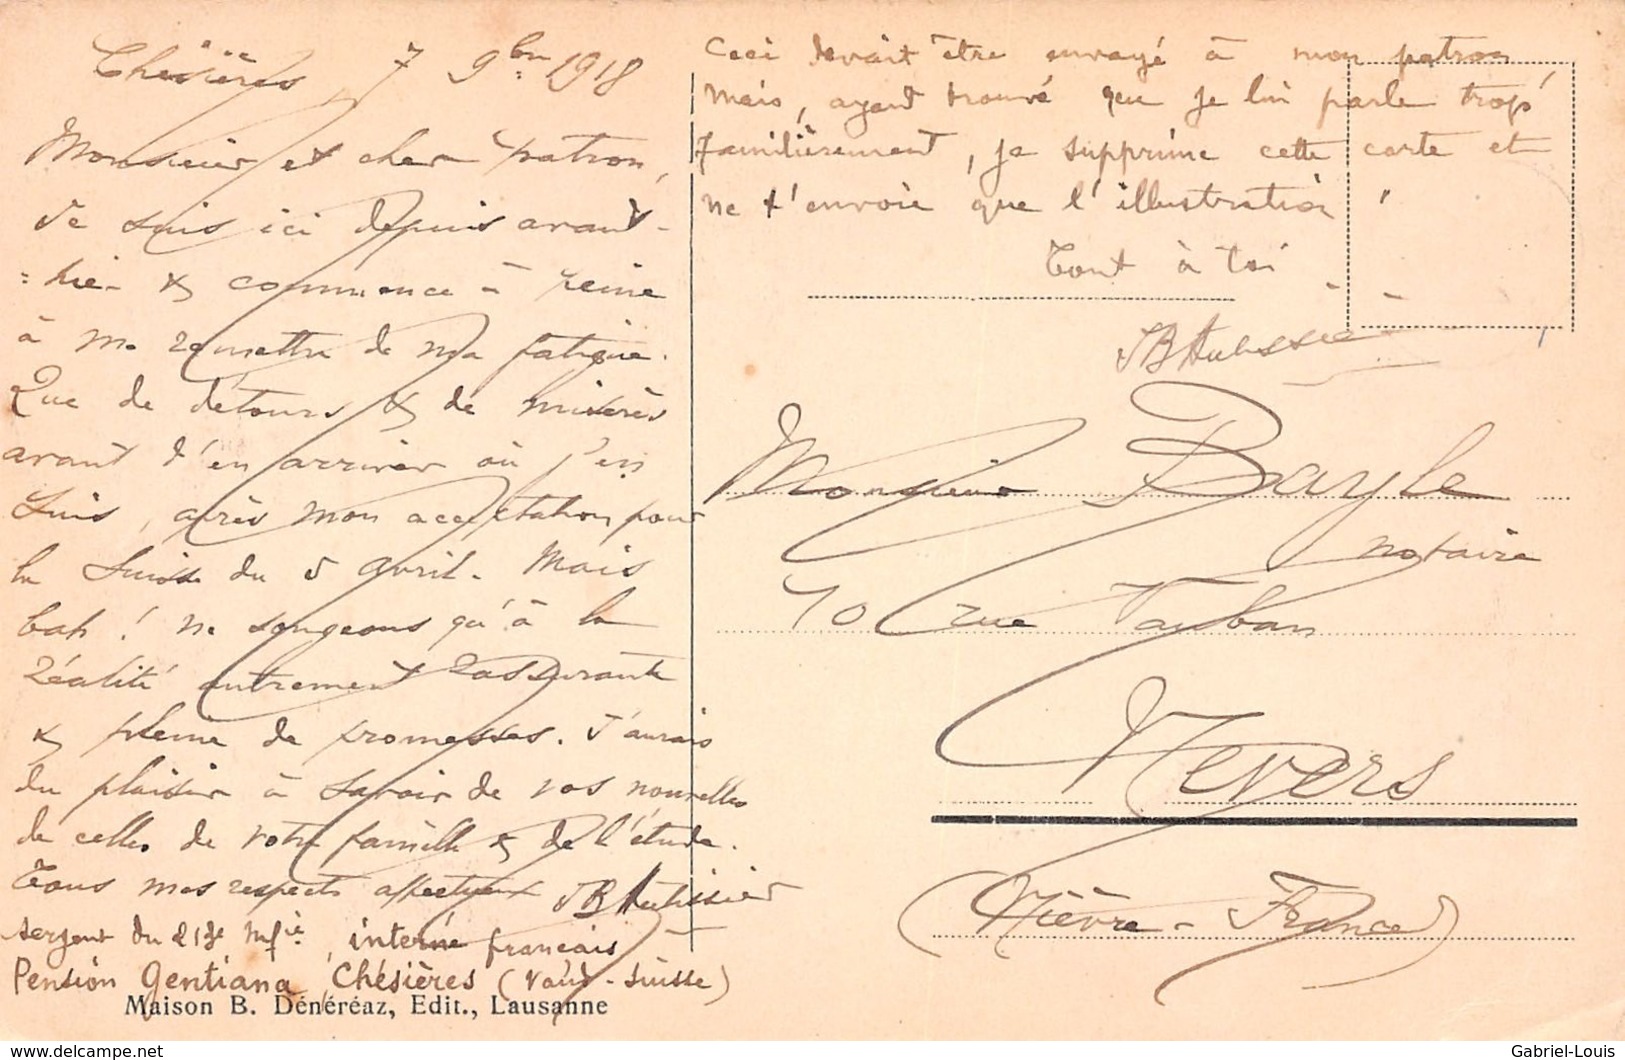 Chésières 7 9bre 1918
Monsieur et cher patron,
Je suis ici depuis avant-
=hier & commence à peine
à me remettre de ma fatigue.
Que de détours & de misères
avant d'en arriver où j'en
suis, après mon acceptation pour
la Suisse du 5 avril. Mais
bah ! ne songeons qu'à la
réalité autrement rassurante
& pleine de promesses. J'aurais
du plaisir à savoir de vos nouvelles
de celles de votre famille & de l'étude.
Tous mes respects affectueux JB Aubissier
sergent du 213e Mfie, interné français
Pension Gentiana, Chésières (Vaud-Suisse)
Maison B. Dénéréaz, Edit., Lausanne
Ceci devait être envoyé à mon patron
Mais, ayant trouvé que je lui parle trop
familièrement, je supprime cette carte et
ne t'envoie que l'illustration
Tout à toi
Monsieur Bayle
notaire
10 rue Vauban
Nevers
(Nièvre - France)
Gabriel-Louis